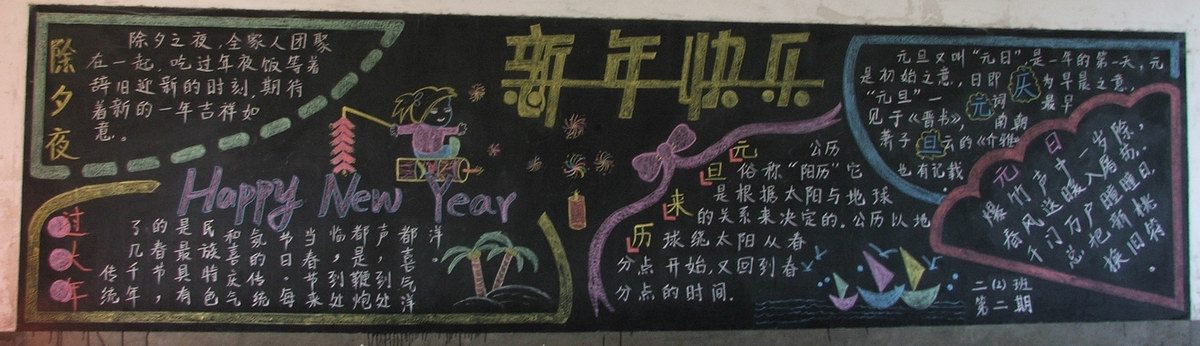 新年快乐
除夕夜
除夕之夜,全家人团聚
在一起.吃过年夜饭等着
辞旧迎新的时刻.期待
着新的一年吉祥如
意.
Happy New Year
过大年
传统
了几千年
的春节,
是最具有
民族特色
和喜庆气
氛的传统
节日.每
当春节来
临,到处
都是鞭炮
声,到处
都喜气洋
洋.
元旦来历
公历
俗称"阳历"它
是根据太阳与地球
的关系来决定的.公历以地
球绕太阳从春
分点开始,又回到春
分点的时间.
元旦又叫"元日",是一年的第一天,元
是初始之意.,日即 为早晨之意.,
"元旦"一 词 最早
见于《晋书》, 南朝
萧子云的《介雅》
也有记载
庆元旦
元日
爆竹声中一岁除,
春风送暖入屠苏.
千门万户瞳瞳日
总把新桃
换旧符.
二(2)班
第二期